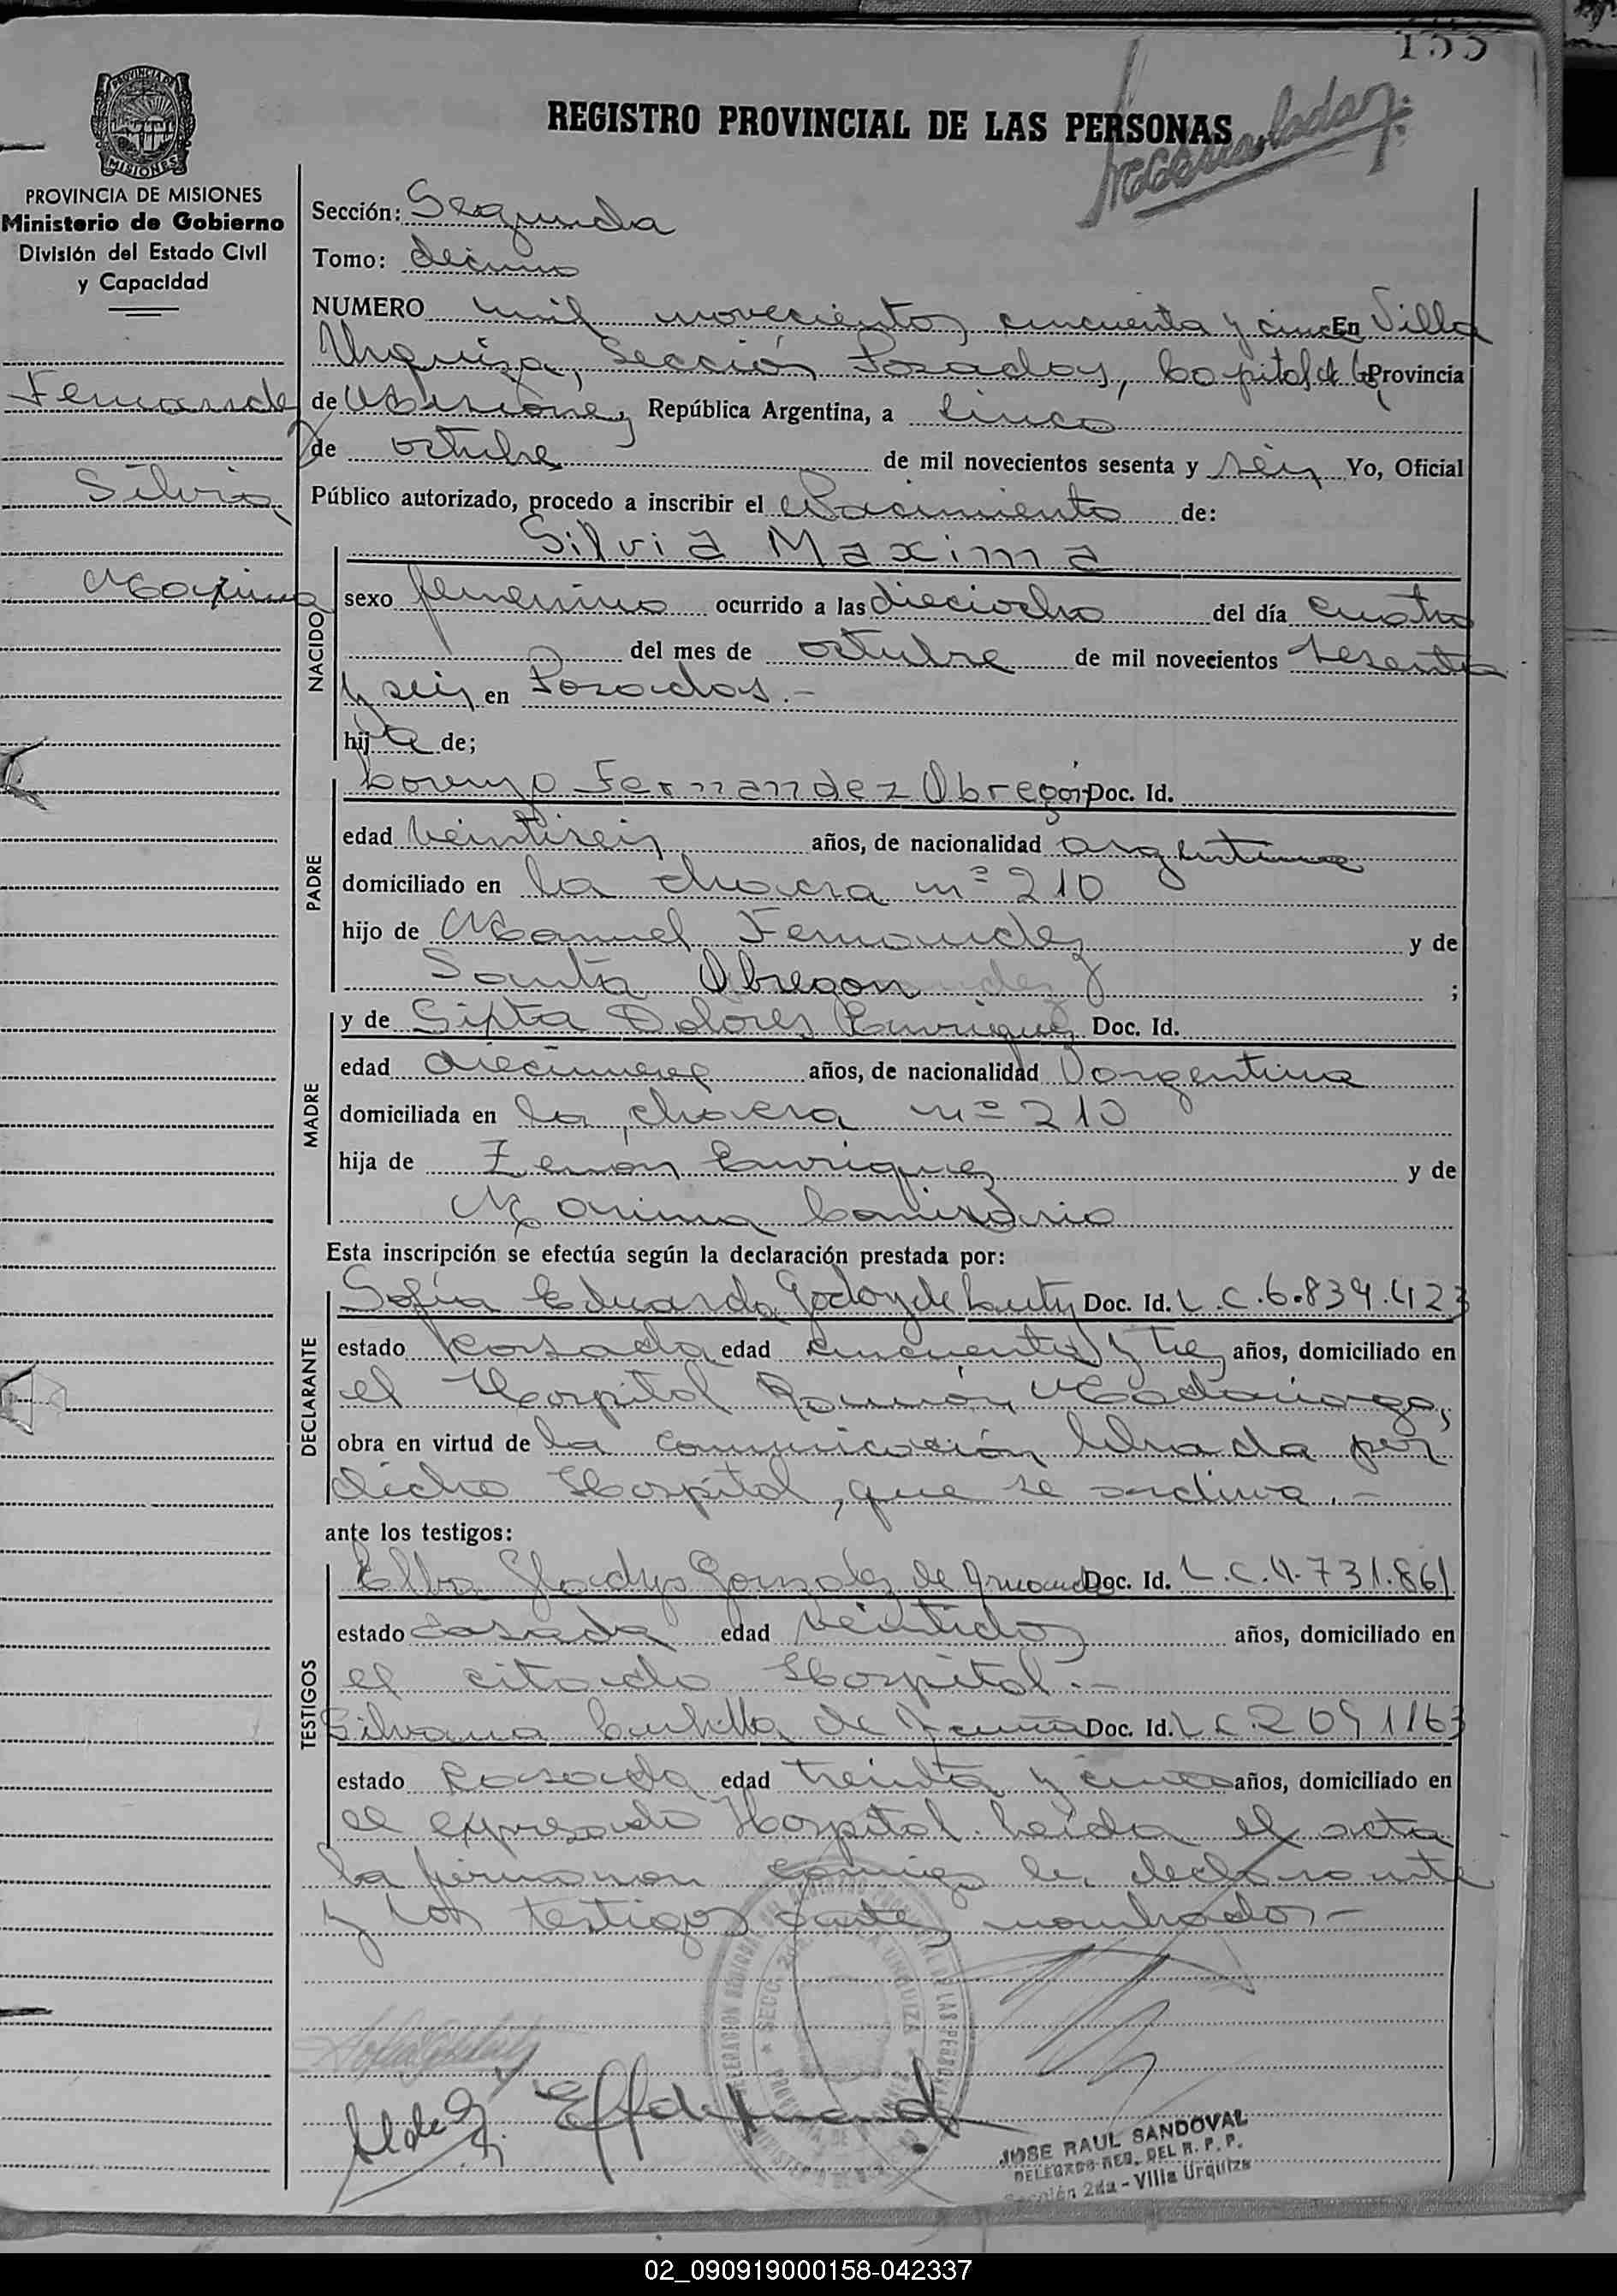 155
REGISTRO PROVINCIAL DE LAS PERSONAS
PROVINCIA DE MISIONES
Ministerio de Gobierno
División del Estado Civil
y Capacidad
Fernandez
Silvia
Maxima
Sección: Segunda
Tomo: decimo
NUMERO mil novecientos cincuenta y cinco En Villa
Urquiza, Sección Posadas, Capital de la Provincia
de Misiones, República Argentina, a cinco
de octubre de mil novecientos sesenta y seis Yo, Oficial
Público autorizado, procedo a inscribir el Nacimiento de:
NACIDO
Silvia Maxima
sexo femenino ocurrido a las dieciocho del día cuatro
del mes de octubre de mil novecientos sesenta
y seis en Posadas.-
hija de;
PADRE
Lorenzo Fernandez Obregón Doc. Id.
edad veintiseis años, de nacionalidad argentina
domiciliado en la chacra nº 210
hijo de Manuel Fernandez y de
Santa Obregon ;
MADRE
y de Sixta Dolores Enriquez Doc. Id.
edad diecinueve años, de nacionalidad argentina
domiciliada en la chacra nº 210
hija de Zenón Enriquez y de
Maxima
Esta inscripción se efectúa según la declaración prestada por:
DECLARANTE
Sofia Eduarda Godoy de Doc. Id. L.C.6.839.423
estado casada edad cincuenta y tres años, domiciliado en
el Hospital Ramón Madariaga,
obra en virtud de la comunicación librada por
dicho Hospital, que se archiva.-
ante los testigos:
TESTIGOS
Elba Gladys Gonzalez de Doc. Id. L.C.4.731.861
estado casada edad veintidos años, domiciliado en
el citado Hospital.-
Silvana de Doc. Id. L.C.2091163
estado casada edad treinta y cinco años, domiciliado en
el expresado Hospital. Leida el acta
la firman conmigo la declarante
y los testigos antes nombrados-
JOSE RAUL SANDOVAL
DELEGADO REG. DEL R. P. P.
Sección 2da - Villa Urquiza
02_090919000158-042337